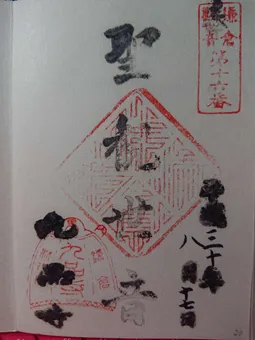 鎌倉
観音
第十六番
平成三十年
八月十七日
聖観世音
九品寺